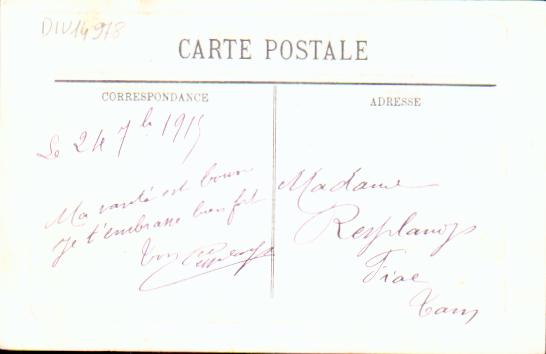 DIV14978
CARTE POSTALE
CORRESPONDANCE
Le 24 7bre 1915
Ma santé est bonne
Je t'embrasse bien fort
Ton
ADRESSE
Madame
Resplandy
Fiac
Tarn